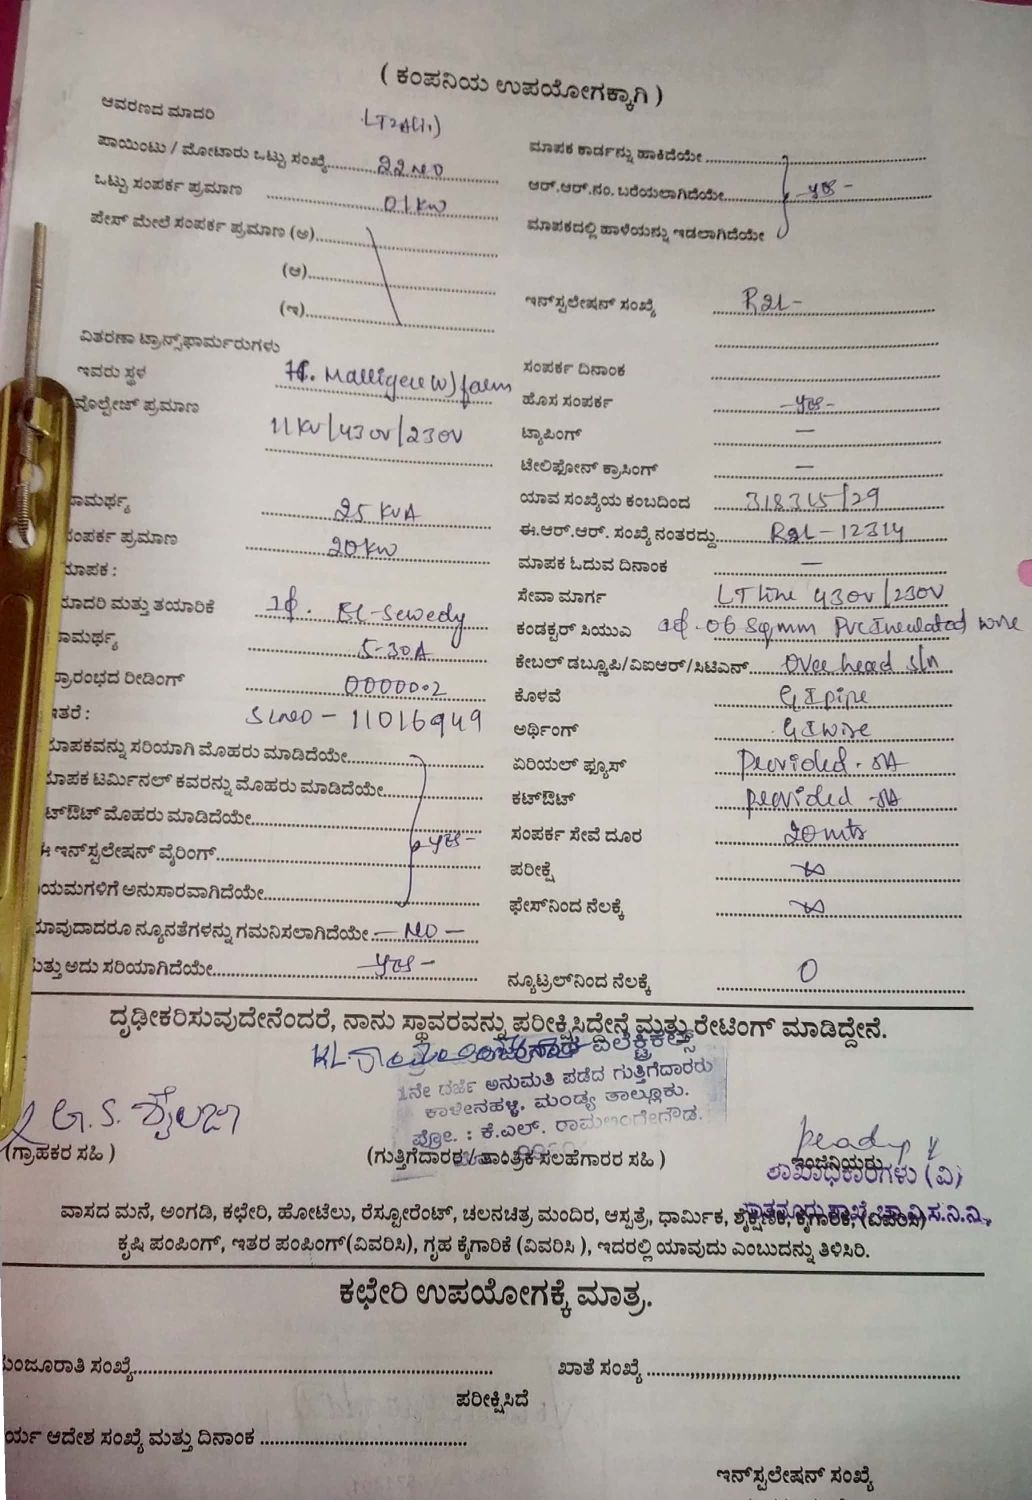 ( ಕಂಪನಿಯ ಉಪಯೋಗಕ್ಕಾಗಿ )
ಆವರಣದ ಮಾದರಿ LT2A(i)
ಪಾಯಿಂಟು / ಮೋಟಾರು ಒಟ್ಟು ಸಂಖ್ಯೆ 22 NO
ಒಟ್ಟು ಸಂಪರ್ಕ ಪ್ರಮಾಣ 01 KW
ಪೇಸ್ ಮೇಲೆ ಸಂಪರ್ಕ ಪ್ರಮಾಣ (ಅ)
(ಆ)
(ಇ)
ವಿತರಣಾ ಟ್ರಾನ್ಸ್‌ಫಾರ್ಮರುಗಳು
ಇವರು ಸ್ಥಳ Malligere farm
ವೊಲ್ಟೇಜ್ ಪ್ರಮಾಣ
11KV/430V/230V
ಾಮರ್ಥ್ಯ 25 KVA
ಸಂಪರ್ಕ ಪ್ರಮಾಣ 20KW
ಮಾಪಕ :
ಮಾದರಿ ಮತ್ತು ತಯಾರಿಕೆ 1ϕ. EL-Sewedy
ಾಮರ್ಥ್ಯ 5-30A
ಪ್ರಾರಂಭದ ರೀಡಿಂಗ್ 000000.2
ಇತರೆ : Slno - 11016949
ಮಾಪಕವನ್ನು ಸರಿಯಾಗಿ ಮೊಹರು ಮಾಡಿದೆಯೇ
ಮಾಪಕ ಟರ್ಮಿನಲ್ ಕವರನ್ನು ಮೊಹರು ಮಾಡಿದೆಯೇ
ಟ್‌ಔಟ್ ಮೊಹರು ಮಾಡಿದೆಯೇ
ಈ ಇನ್‌ಸ್ಪಲೇಷನ್ ವೈರಿಂಗ್ yes -
ಯಮಗಳಿಗೆ ಅನುಸಾರವಾಗಿದೆಯೇ
ಯಾವುದಾದರೂ ನ್ಯೂನತೆಗಳನ್ನು ಗಮನಿಸಲಾಗಿದೆಯೇ - NO -
ಮತ್ತು ಅದು ಸರಿಯಾಗಿದೆಯೇ - yes -
ಮಾಪಕ ಕಾರ್ಡನ್ನು ಹಾಕಿದೆಯೇ
ಆರ್.ಆರ್.ನಂ. ಬರೆಯಲಾಗಿದೆಯೇ - yes -
ಮಾಪಕದಲ್ಲಿ ಹಾಳೆಯನ್ನು ಇಡಲಾಗಿದೆಯೇ
ಇನ್‌ಸ್ಪಲೇಷನ್ ಸಂಖ್ಯೆ R2L -
ಸಂಪರ್ಕ ದಿನಾಂಕ
ಹೊಸ ಸಂಪರ್ಕ - yes -
ಟ್ಯಾಪಿಂಗ್ —
ಟೇಲಿಫೋನ್ ಕ್ರಾಸಿಂಗ್ —
ಯಾವ ಸಂಖ್ಯೆಯ ಕಂಬದಿಂದ 318315/29
ಈ.ಆರ್.ಆರ್. ಸಂಖ್ಯೆ ನಂತರದ್ದು R2L - 12314
ಮಾಪಕ ಓದುವ ದಿನಾಂಕ —
ಸೇವಾ ಮಾರ್ಗ LT line 430V/230V
ಕಂಡಕ್ಟರ್ ಸಿಯುಎ 1ϕ. 06 Sqmm PVC Insulated wire
ಕೇಬಲ್ ಡಬ್ಲೂಪಿ/ವಿಐಆರ್/ಸಿಟಿಎನ್ Over head s/n
ಕೊಳವೆ GI pipe
ಅರ್ಥಿಂಗ್ GI wire
ಏರಿಯಲ್ ಫ್ಯೂಸ್ Provided - 5A
ಕಟ್‌ಔಟ್ provided - 5A
ಸಂಪರ್ಕ ಸೇವೆ ದೂರ 20 mts
ಪರೀಕ್ಷೆ ∞
ಫೇಸ್‌ನಿಂದ ನೆಲಕ್ಕೆ ∞
ನ್ಯೂಟ್ರಲ್‌ನಿಂದ ನೆಲಕ್ಕೆ 0
ದೃಢೀಕರಿಸುವುದೇನೆಂದರೆ, ನಾನು ಸ್ಥಾವರವನ್ನು ಪರೀಕ್ಷಿಸಿದ್ದೇನೆ ಮತ್ತು ರೇಟಿಂಗ್ ಮಾಡಿದ್ದೇನೆ.
ಎಲೆಕ್ಟ್ರಿಕಲ್ಸ್
1ನೇ ದರ್ಜೆ ಅನುಮತಿ ಪಡೆದ ಗುತ್ತಿಗೆದಾರರು
ಕಾಳೇನಹಳ್ಳಿ, ಮಂಡ್ಯ ತಾಲ್ಲೂಕು.
ಪ್ರೋ. : ಕೆ.ಎಲ್. ರಾಮಲಿಂಗೇಗೌಡ.
G.S. ಶೈಲಜಾ
(ಗ್ರಾಹಕರ ಸಹಿ )
(ಗುತ್ತಿಗೆದಾರರ / ತಾಂತ್ರಿಕ ಸಲಹೆಗಾರರ ಸಹಿ )
ಇಂಜಿನಿಯರು
ಶಾಖಾಧಿಕಾರಿಗಳು (ವಿ)
ವಾಸದ ಮನೆ, ಅಂಗಡಿ, ಕಛೇರಿ, ಹೋಟೆಲು, ರೆಸ್ಟೋರೆಂಟ್, ಚಲನಚಿತ್ರ ಮಂದಿರ, ಆಸ್ಪತ್ರೆ, ಧಾರ್ಮಿಕ, ಶೈಕ್ಷಣಿಕ, ಕೈಗಾರಿಕೆ, (ವಿವರಿಸಿ)
ಕೃಷಿ ಪಂಪಿಂಗ್, ಇತರ ಪಂಪಿಂಗ್(ವಿವರಿಸಿ), ಗೃಹ ಕೈಗಾರಿಕೆ (ವಿವರಿಸಿ ), ಇದರಲ್ಲಿ ಯಾವುದು ಎಂಬುದನ್ನು ತಿಳಿಸಿರಿ.
ಕಛೇರಿ ಉಪಯೋಗಕ್ಕೆ ಮಾತ್ರ.
ಮಂಜೂರಾತಿ ಸಂಖ್ಯೆ ಖಾತೆ ಸಂಖ್ಯೆ
ಪರೀಕ್ಷಿಸಿದೆ
ರ್ಯ ಆದೇಶ ಸಂಖ್ಯೆ ಮತ್ತು ದಿನಾಂಕ
ಇನ್‌ಸ್ಪಲೇಷನ್ ಸಂಖ್ಯೆ